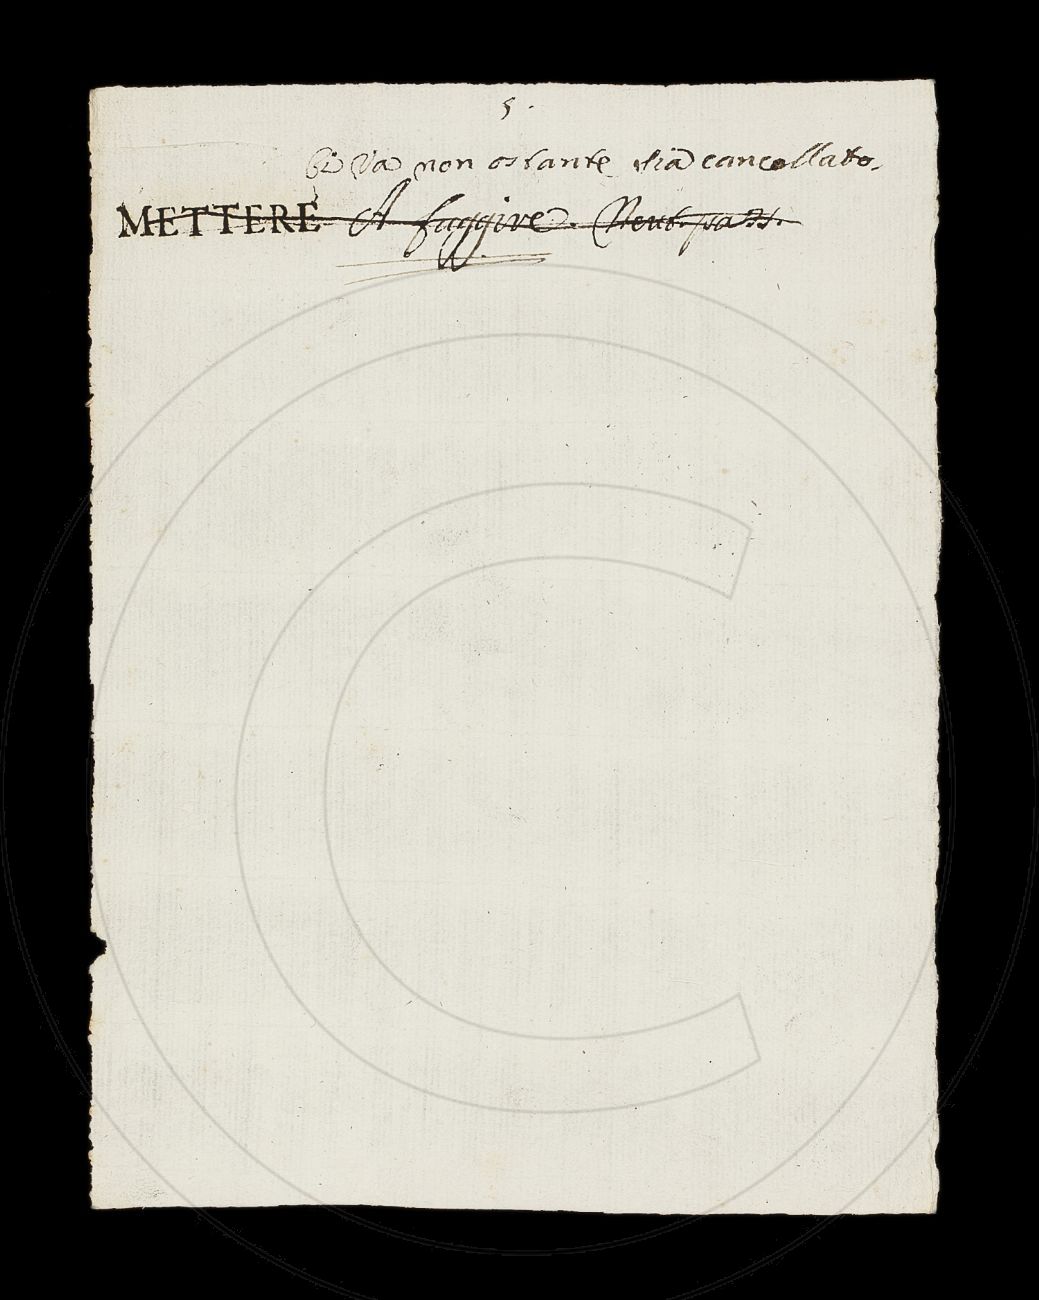 5.
Si Va non ostante sia cancellato.
METTERE A fuggire. Neut. pass.